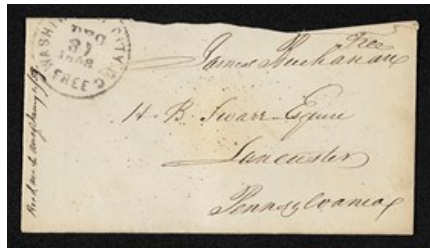 WASHINGTON CITY
DEC
31
1848
FREE
Free
James Buchanan
H. B. Swarr Esquire
Lancaster
Pennsylvania